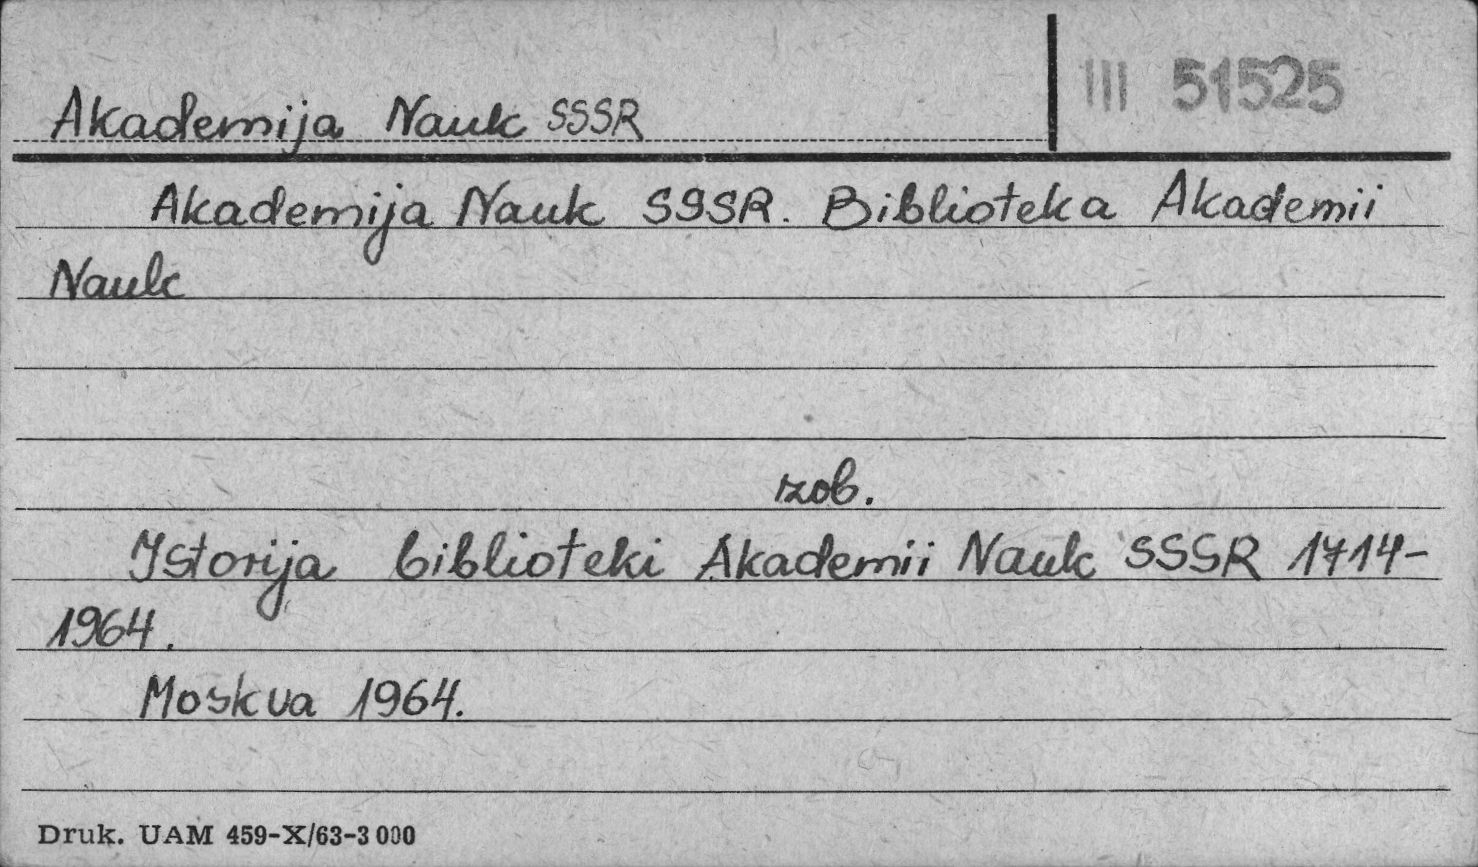 Akademija Nauk SSSR
III 51525
Akademija Nauk SSSR. Biblioteka Akademii
Nauk
zob.
Istorija biblioteki Akademii Nauk SSSR 1714-
1964.
Moskva 1964.
Druk. UAM 459-X/63-3 000